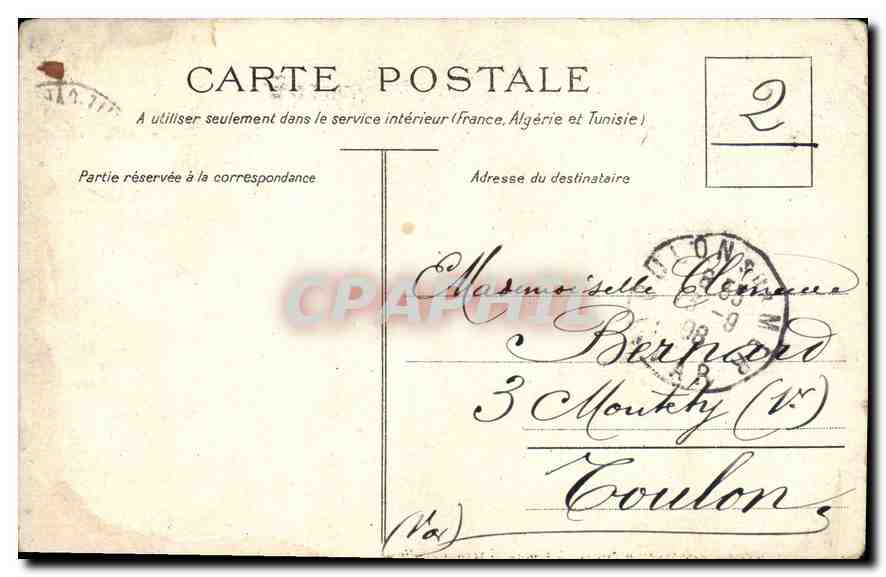 CARTE POSTALE
A utiliser seulement dans le service intérieur (France, Algérie et Tunisie)
2
Partie réservée à la correspondance
Adresse du destinataire
CPAPHIL
Mademoiselle Clémence
Bernard
3 Montéty (Vr)
Toulon
(Var)